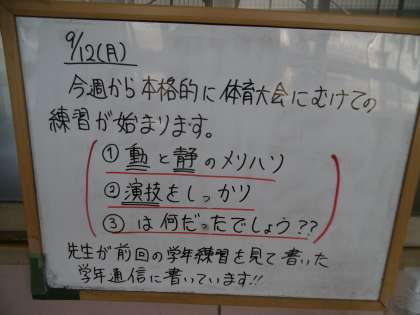 9/12(月)
今週から本格的に体育大会にむけての
練習が始まります。
① 動と静のメリハリ
② 演技をしっかり
③ は何だったでしょう??
先生が前回の学年練習を見て書いた
学年通信に書いています!!